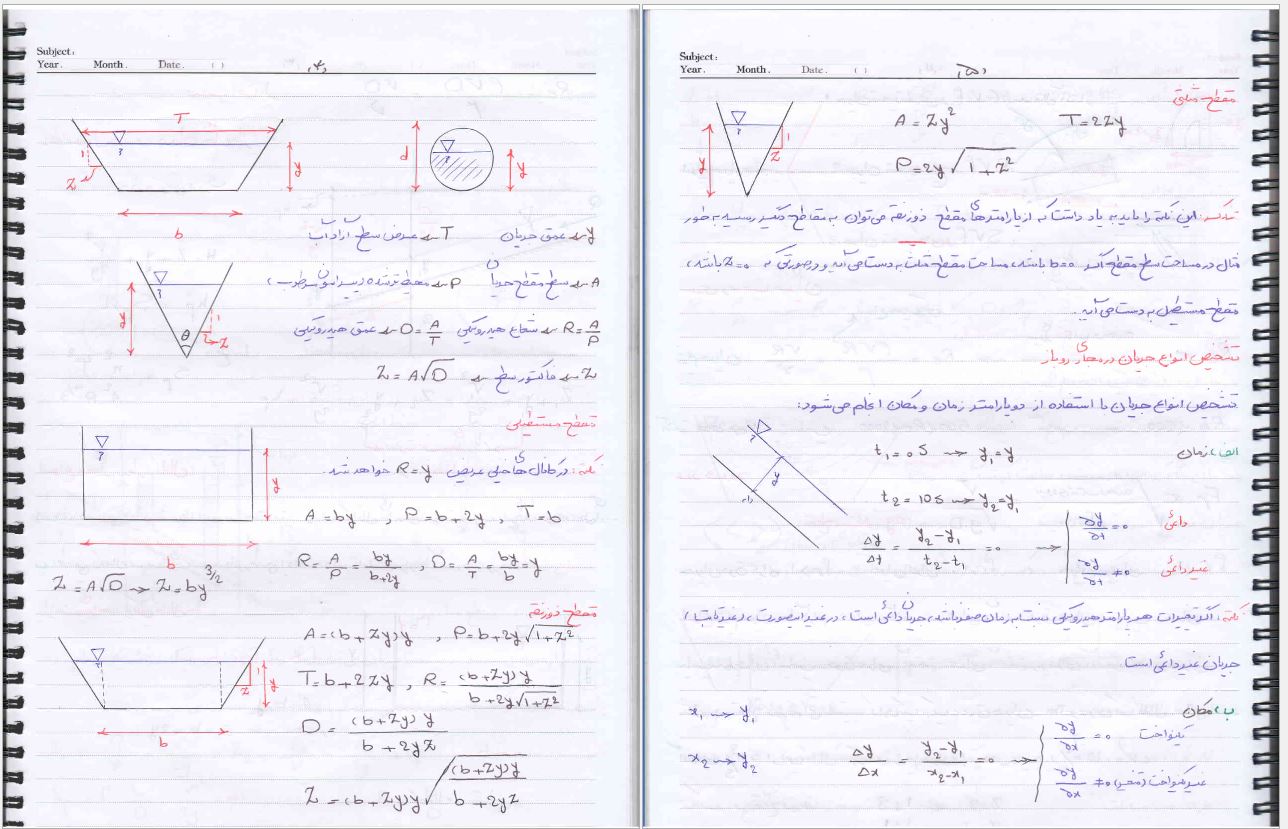 Subject:
Year. Month. Date. ( )
(۴)
T
1
Z
y
b
d
y
y → عمق جریان T → عرض سطح آزاد آب
A → سطح مقطع جریان P → محیط تر شده (پیرامون مرطوب)
R = A/P → شعاع هیدرولیکی D = A/T → عمق هیدرولیکی
Z → فاکتور سطح → Z = A√D
y
θ
1
Z
مقطع مستطیلی
نکته: در کانال های خیلی عریض R = y خواهد شد.
A = by , P = b+2y , T = b
y
b
R = A/P = by/(b+2y) , D = A/T = by/b = y
Z = A√D → Z = by^3/2
مقطع ذوزنقه
A = (b+Zy)y , P = b+2y√(1+Z²)
T = b+2Zy , R = (b+Zy)y / (b+2y√(1+Z²))
1
Z
y
b
D = (b+Zy)y / (b+2yZ)
Z = (b+Zy)y √((b+Zy)y / (b+2yZ))
Subject:
Year. Month. Date. ( )
(۵)
مقطع مثلثی
A = Zy² T = 2Zy
P = 2y√(1+Z²)
y
1
Z
تذکر: این نکته را باید به یاد داشت که از پارامترهای مقطع ذوزنقه می‌توان به مقاطع دیگر رسید به طور
مثال در مساحت سطح مقطع اگر b=0 باشد، مساحت مقطع مثلث به دست می آید و در صورتی که Z=0 باشد،
مقطع مستطیل به دست می آید.
تشخیص انواع جریان در مجاری روباز
تشخیص انواع جریان با استفاده از دو پارامتر زمان و مکان انجام می شود:
الف) زمان
t₁ = 0 s → y₁ = y
t₂ = 10 s → y₂ = y₁
y
(۱)
Δy/Δt = (y₂-y₁)/(t₂-t₁) = 0 →
∂y/∂t = 0 دائمی
∂y/∂t ≠ 0 غیر دائمی
نکته: اگر تغییرات هر پارامتر هیدرولیکی نسبت به زمان صفر باشد، جریان دائمی است، در غیر اینصورت،
جریان غیر دائمی است
ب) مکان
x₁ → y₁
x₂ → y₂
Δy/Δx = (y₂-y₁)/(x₂-x₁) = 0 →
∂y/∂x = 0 یکنواخت
∂y/∂x ≠ 0 غیر یکنواخت (متغیر)